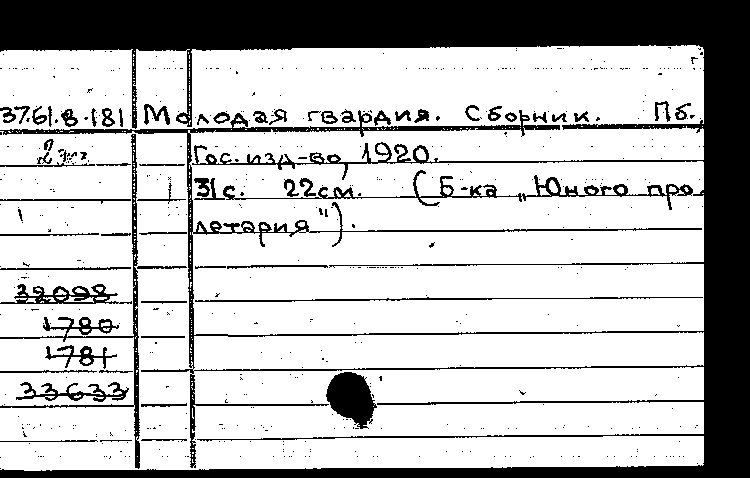 37.61.8.181 Молодая гвардия. Сборник. Пб.,
2 экз Гос. изд-во, 1920.
31с. 22см. (Б-ка „Юного про-
летария").
32098
1780
1781
33633